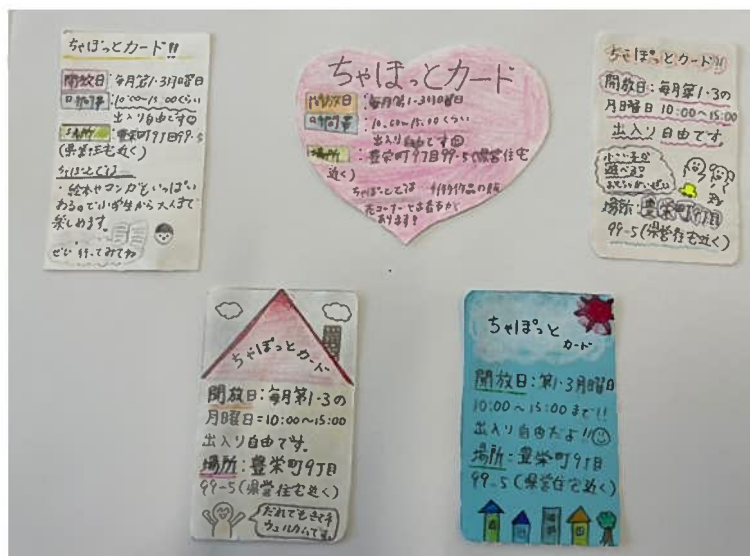 ちゃぽっとカード!!
開放日:毎月第1・3月曜日
時間帯:10:00〜15:00くらい
出入り自由です
場所:豊栄町9丁目99-5
(県営住宅近く)
ちゃぽっとでは
・絵本やマンガもいっぱい
あるので小学生から大人まで
楽しめます。
ぜひ行ってみてね
ちゃぽっとカード
開放日:毎月第1・3月曜日
時間帯:10:00〜15:00くらい
出入り自由です
場所:豊栄町9丁目99-5(県営住宅
近く)
あります!
ちゃぽっとカード!!
開放日:毎月第1・3の
月曜日 10:00〜15:00
出入り自由です。
小さい子が
遊べる
場所:豊栄町9丁目
99-5(県営住宅近く)
ちゃぽっとカード
開放日:毎月第1・3の
月曜日=10:00〜15:00
出入り自由です。
場所:豊栄町9丁目
99-5(県営住宅近く)
だれでもきてネ
ウェルカムです。
ちゃぽっと
カード
開放日:第1・3月曜日
10:00〜15:00まで!!
出入り自由だよ!!
場所:豊栄町9丁目
99-5(県営住宅近く)